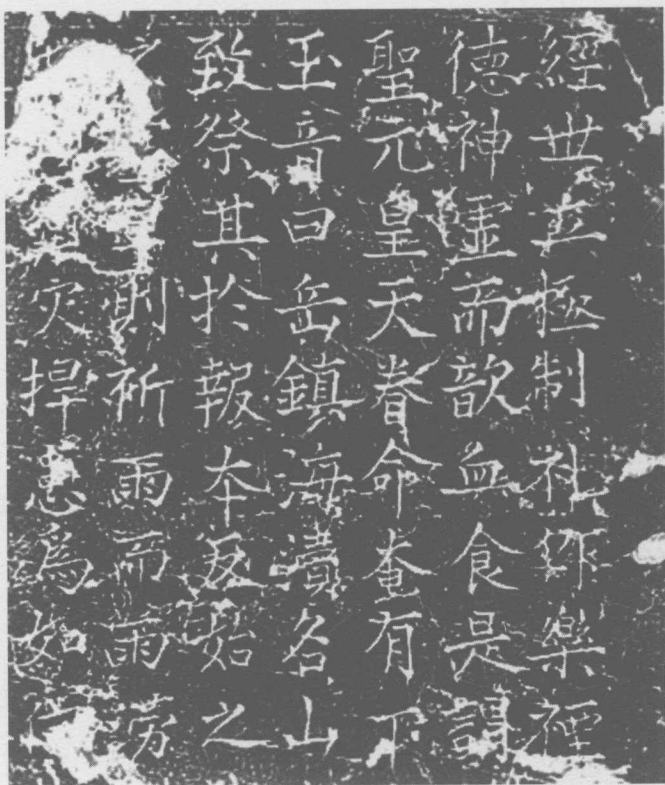 經世立極制礼樂禋
德神虛而歆血食是謂
聖元皇天眷命奄有下
玉音曰岳鎮海瀆名山
致祭其扵報本返始之
則祈雨而雨澇
灾捍患爲如